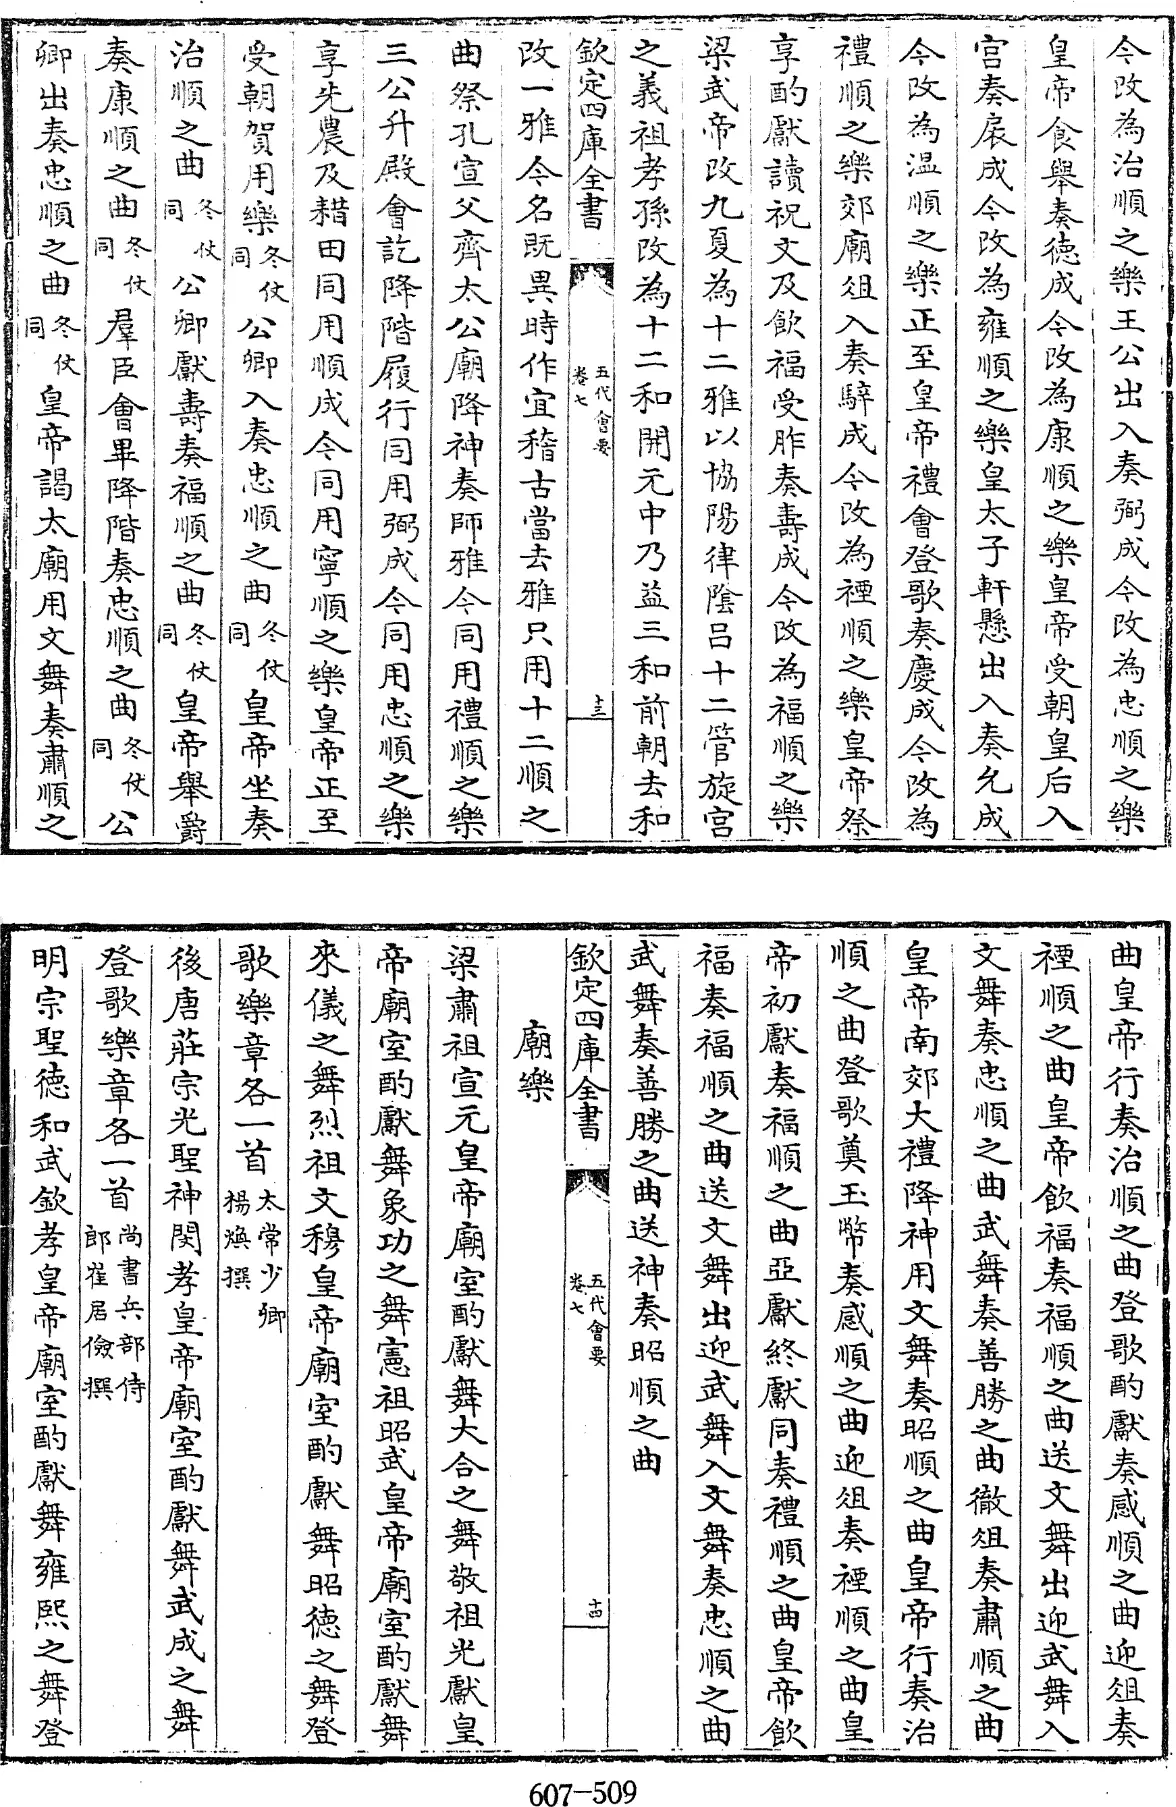 今改為治順之樂王公出入奏弼成今改為忠順之樂
皇帝食舉奏德成今改為康順之樂皇帝受朝皇后入
宫奏扆成今改為雍順之樂皇太子軒懸出入奏允成
今改為温順之樂正至皇帝禮會登歌奏慶成今改為
禮順之樂郊廟俎入奏騂成今改為禋順之樂皇帝祭
享酌獻讀祝文及飲福受胙奏壽成今改為福順之樂
梁武帝改九夏為十二雅以協陽律隂呂十二管旋宫
之義祖孝孫改為十二和開元中乃益三和前朝去和
欽定四庫全書
五代會要
卷七
十三
改一雅今名既異時作宜稽古當去雅只用十二順之
曲祭孔宣父齊太公廟降神奏師雅今同用禮順之樂
三公升殿會訖降階履行同用弼成今同用忠順之樂
享先農及耤田同用順成今同用寧順之樂皇帝正至
受朝賀用樂冬仗同公卿入奏忠順之曲冬仗同皇帝坐奏
治順之曲冬仗同公卿獻壽奏福順之曲冬仗同皇帝舉爵
奏康順之曲冬仗同羣臣會畢降階奏忠順之曲冬仗同公
卿出奏忠順之曲冬仗同皇帝謁太廟用文舞奏肅順之
曲皇帝行奏治順之曲登歌酌獻奏感順之曲迎俎奏
禋順之曲皇帝飲福奏福順之曲送文舞出迎武舞入
文舞奏忠順之曲武舞奏善勝之曲徹俎奏肅順之曲
皇帝南郊大禮降神用文舞奏昭順之曲皇帝行奏治
順之曲登歌奠玉幣奏感順之曲迎俎奏禋順之曲皇
帝初獻奏福順之曲亞獻終獻同奏禮順之曲皇帝飲
福奏福順之曲送文舞出迎武舞入文舞奏忠順之曲
武舞奏善勝之曲送神奏昭順之曲
欽定四庫全書
五代會要
卷七
十四
廟樂
梁肅祖宣元皇帝廟室酌獻舞大合之舞敬祖光獻皇
帝廟室酌獻舞象功之舞憲祖昭武皇帝廟室酌獻舞
來儀之舞烈祖文穆皇帝廟室酌獻舞昭德之舞登
歌樂章各一首太常少卿楊煥撰
後唐莊宗光聖神閔孝皇帝廟室酌獻舞武成之舞
登歌樂章各一首尚書兵部侍郎崔居儉撰
明宗聖德和武欽孝皇帝廟室酌獻舞雍熙之舞登
607-509